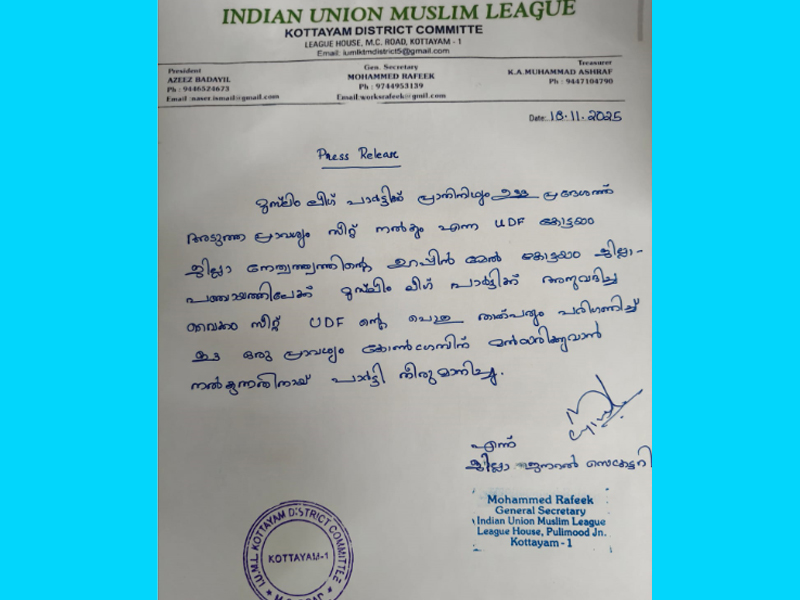 INDIAN UNION MUSLIM LEAGUE
KOTTAYAM DISTRICT COMMITTE
LEAGUE HOUSE, M.C. ROAD, KOTTAYAM - 1
Email: iumlktmdistrict5@gmail.com
President
AZEEZ BADAYIL
Ph : 9446524673
Email :naser.ismail@gmail.com
Gen. Secretary
MOHAMMED RAFEEK
Ph : 9744953139
Email:worksrafeek@gmil.com
Treasurer
K.A.MUHAMMAD ASHRAF
Ph : 9447104790
Date: 18.11.2025
Press Release
മുസ്ലിം ലീഗ് പാർട്ടിക്ക് പ്രാതിനിധ്യം ഉള്ള പ്രദേശത്ത്
അടുത്ത പ്രാവശ്യം സീറ്റ് നൽകും എന്ന UDF കോട്ടയം
ജില്ലാ നേതൃത്വത്തിന്റെ ഉറപ്പിൻ മേൽ കോട്ടയം ജില്ലാ-
പഞ്ചായത്തിലേക്ക് മുസ്ലിം ലീഗ് പാർട്ടിക്ക് അനുവദിച്ച
വൈക്കം സീറ്റ് UDF ന്റെ പൊതു താൽപര്യം പരിഗണിച്ച്
ഒരു പ്രാവശ്യം കോൺഗ്രസിന് മൽസരിക്കുവാൻ
നൽകുന്നതിനായ് പാർട്ടി തീരുമാനിച്ചു.
എന്ന്
ജില്ലാ ജനറൽ സെക്രട്ടറി
Mohammed Rafeek
General Secretary
Indian Union Muslim League
League House, Pulimood Jn.
Kottayam - 1
I.U.M.L. KOTTAYAM DISTRICT COMMITTEE
KOTTAYAM-1